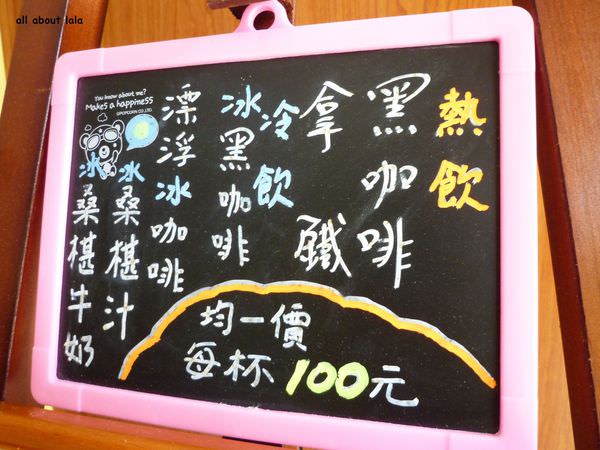 all about lala
You know about me?
Makes a happiness
©POPCORN CO.,LTD.
熱飲
黑咖啡
拿鐵
冷飲
冰黑咖啡
漂浮冰咖啡
冰桑椹汁
冰桑椹牛奶
均一價
每杯100元